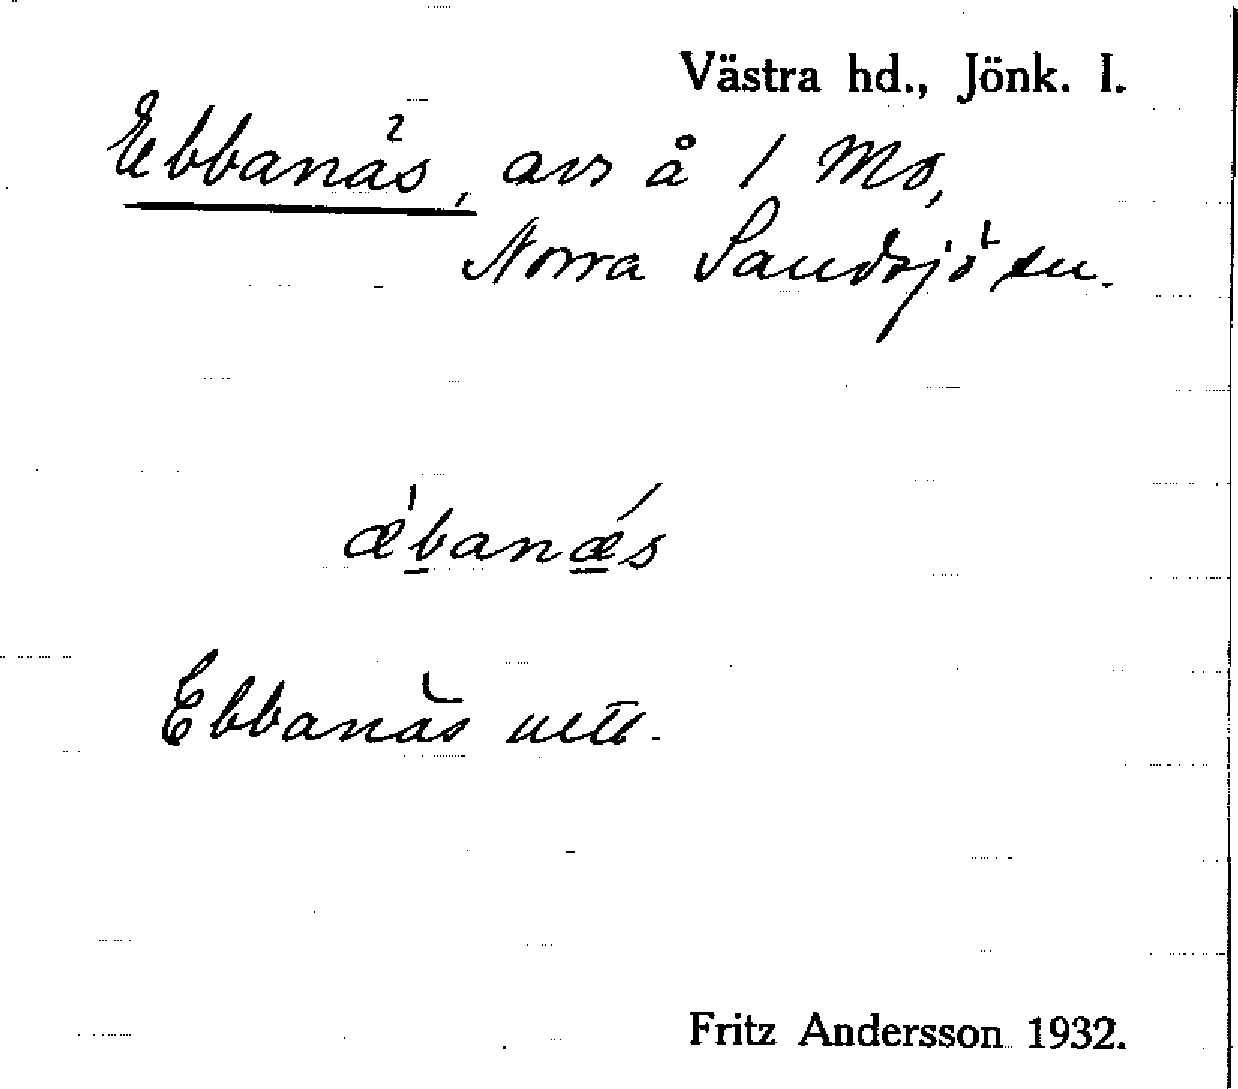 Västra hd., Jönk. l.
Ebbanäs, avs å 1 Mo,
Norra Sandsjö sn.
æ̍b̲anǽ̲s
Ebbanäs
Fritz Andersson 1932.